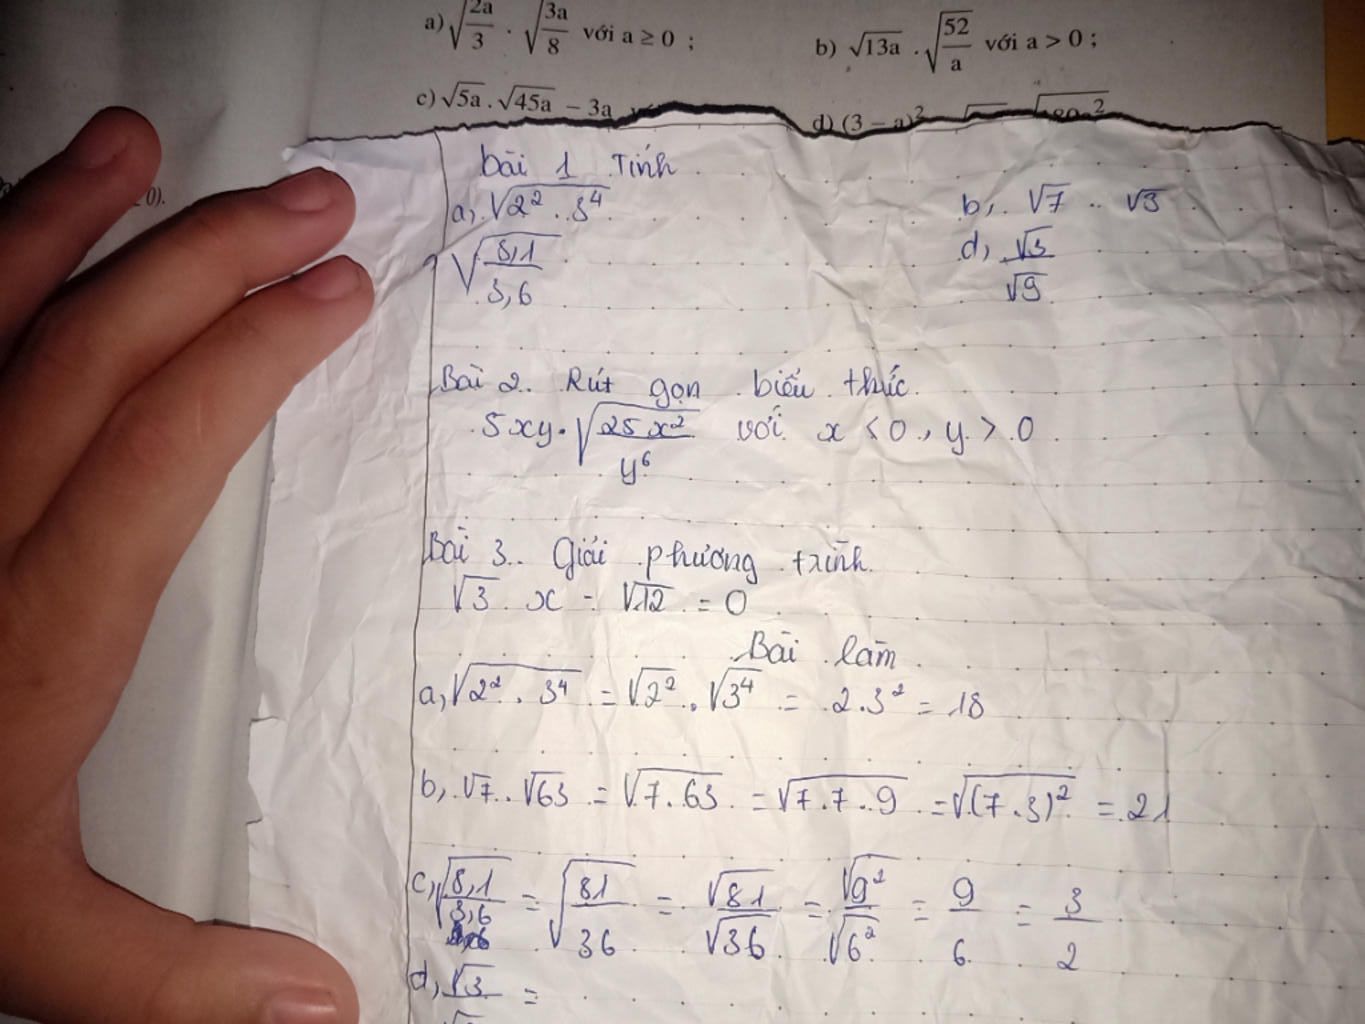 a) √(2a/3) . √(3a/8) với a ≥ 0 ;
b) √13a . √(52/a) với a > 0 ;
c) √5a . √45a – 3a
d) (3 – a)²
0).
bài 1 Tính
a, √(2² . 3⁴)
b, √7 . √3
√(8,1/3,6)
d, √3/√9
Bài 2. Rút gọn biểu thức.
5xy . √(25x²/y⁶) với x < 0, y > 0
Bài 3. Giải phương trình
√3 . x - √12 = 0
Bài làm
a, √(2² . 3⁴) = √2² . √3⁴ = 2.3² = 18
b, √7 . √63 = √(7 . 63) = √(7 . 7 . 9) = √(7 . 3)² = 21
c, √(8,1/3,6) = √(81/36) = √81/√36 = √9²/√6² = 9/6 = 3/2
d, √3 =